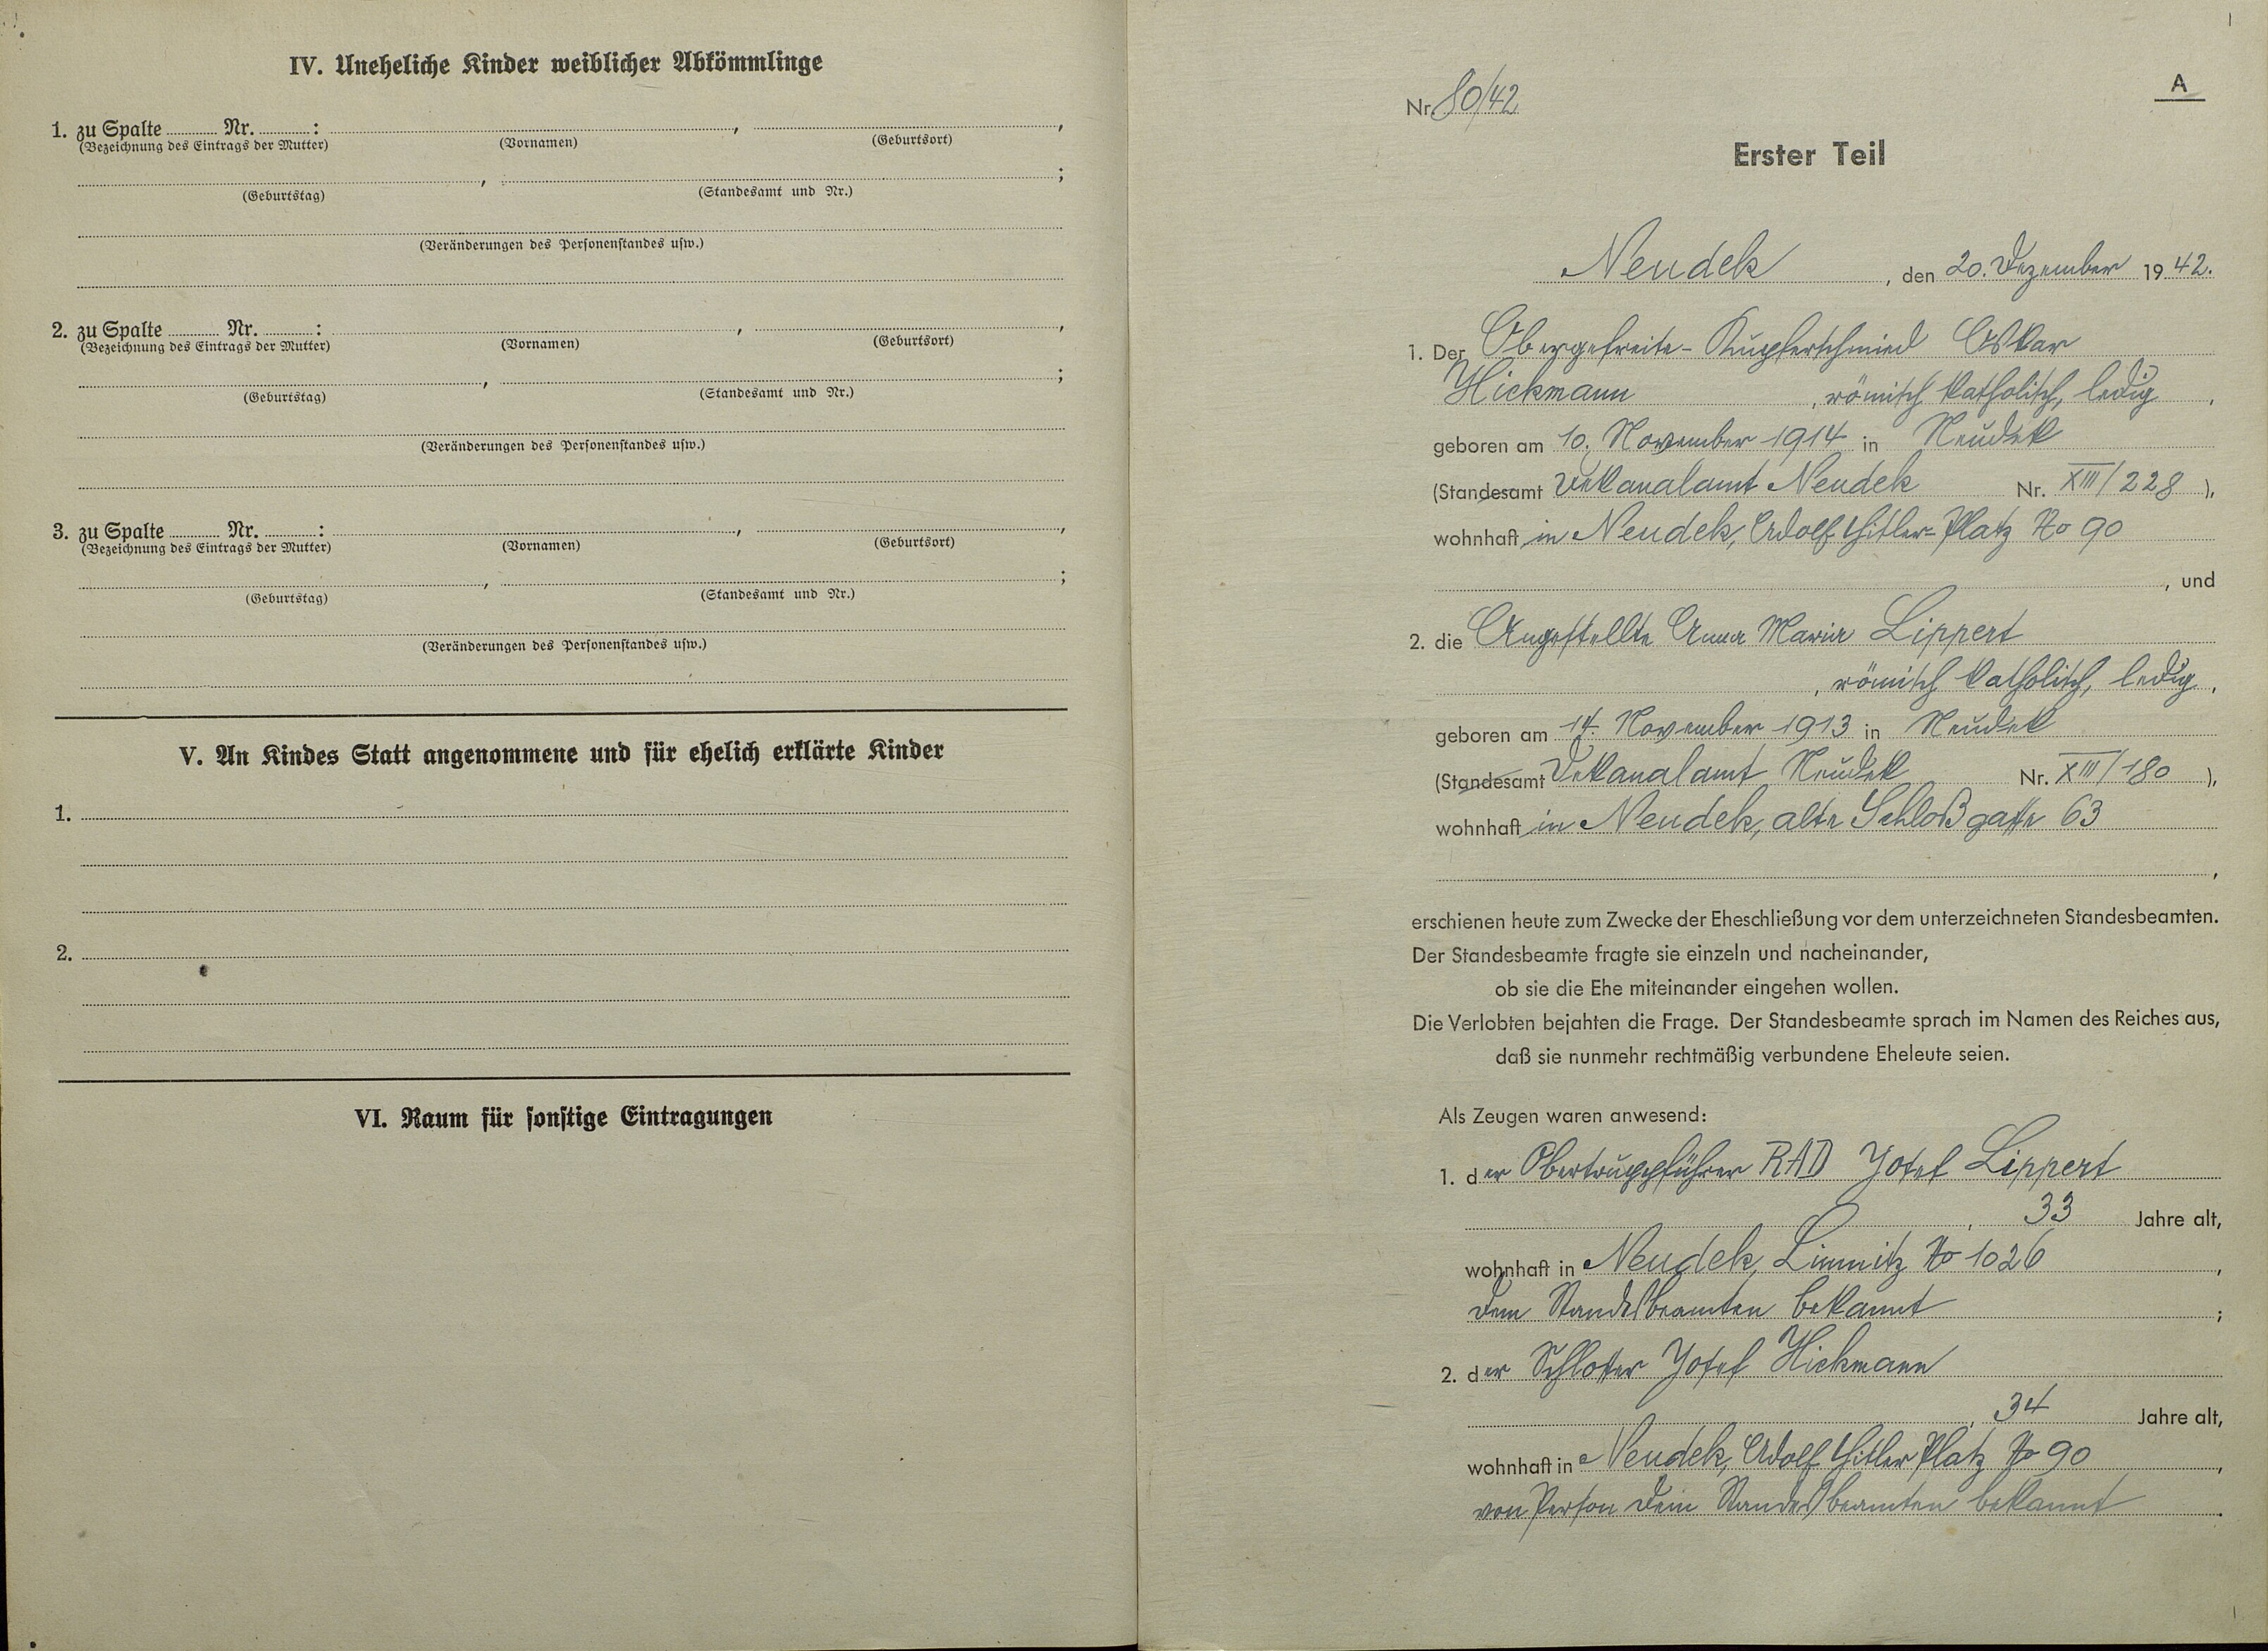 IV. Uneheliche Kinder weiblicher Abkömmlinge
1. zu Spalte ........ Nr. ........ : , ,
(Bezeichnung des Eintrags der Mutter) (Vornamen) (Geburtsort)
, ;
(Geburtstag) (Standesamt und Nr.)
(Veränderungen des Personenstandes usw.)
2. zu Spalte ........ Nr. ........ : , ,
(Bezeichnung des Eintrags der Mutter) (Vornamen) (Geburtsort)
, ;
(Geburtstag) (Standesamt und Nr.)
(Veränderungen des Personenstandes usw.)
3. zu Spalte ........ Nr. ........ : , ,
(Bezeichnung des Eintrags der Mutter) (Vornamen) (Geburtsort)
, ;
(Geburtstag) (Standesamt und Nr.)
(Veränderungen des Personenstandes usw.)
V. An Kindes Statt angenommene und für ehelich erklärte Kinder
1.
2.
VI. Raum für sonstige Eintragungen
A
Nr. 80/42
Erster Teil
Neudek, den 20. Dezember 1942.
1. Der Obergefreite-Kupferschmied Oskar
Hickmann, römisch katholisch, ledig,
geboren am 10. November 1914 in Neudek
(Standesamt Dekanalamt Neudek Nr. XIII/228),
wohnhaft in Neudek, Adolf Hitler-Platz No 90
, und
2. die Angestellte Anna Maria Lippert
, römisch katholisch, ledig,
geboren am 14. November 1913 in Neudek
(Standesamt Dekanalamt Neudek Nr. XIII/180),
wohnhaft in Neudek, alte Schloßgasse 63
,
erschienen heute zum Zwecke der Eheschließung vor dem unterzeichneten Standesbeamten.
Der Standesbeamte fragte sie einzeln und nacheinander,
ob sie die Ehe miteinander eingehen wollen.
Die Verlobten bejahten die Frage. Der Standesbeamte sprach im Namen des Reiches aus,
daß sie nunmehr rechtmäßig verbundene Eheleute seien.
Als Zeugen waren anwesend:
1. der Obertruppführer RAD Josef Lippert
, 33 Jahre alt,
wohnhaft in Neudek, Limnitz No 1026,
dem Standesbeamten bekannt;
2. der Schlosser Josef Hickmann
, 34 Jahre alt,
wohnhaft in Neudek, Adolf Hitler Platz No 90,
von Person dem Standesbeamten bekannt.